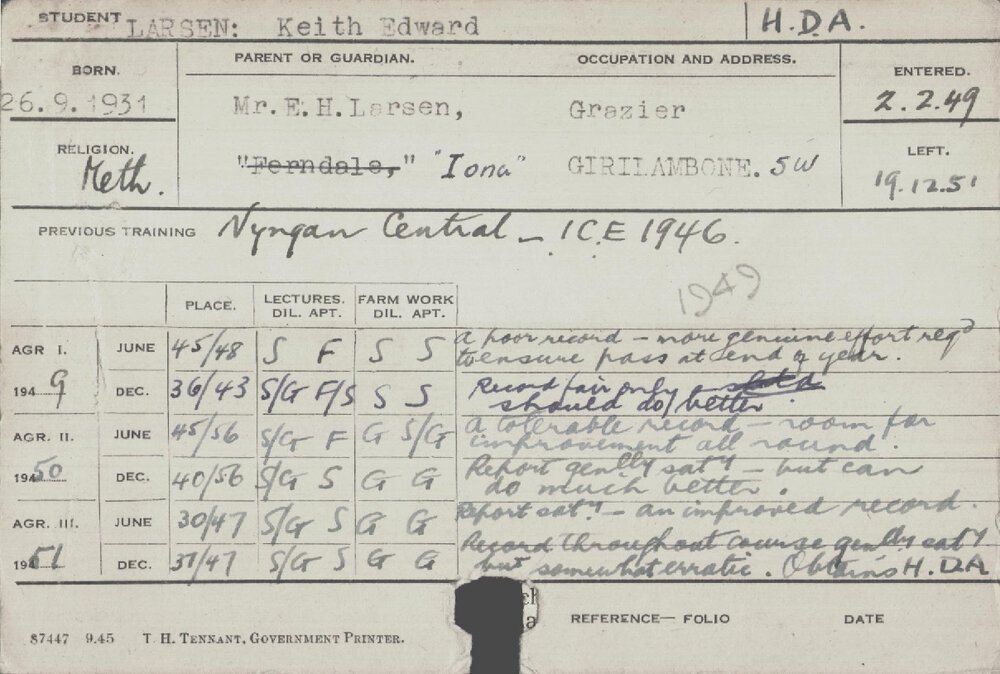 STUDENT LARSEN: Keith Edward H.D.A.
BORN. PARENT OR GUARDIAN. OCCUPATION AND ADDRESS. ENTERED.
26.9.1931 Mr. E. H. Larsen, Grazier 2.2.49
RELIGION. LEFT.
Meth. "Ferndale," "Iona" GIRILAMBONE. 5W 19.12.51
PREVIOUS TRAINING Nyngan Central - I.C.E 1946.
1949
PLACE. LECTURES. FARM WORK
DIL. APT. DIL. APT.
AGR I. JUNE 45/48 S F S S A poor record - more genuine effort reqd
to ensure pass at end of year.
1949 DEC. 36/43 S/G F/S S S Record fair only
should do better.
AGR. II. JUNE 45/56 S/G F G S/G A tolerable record - room for
improvement all round.
1950 DEC. 40/56 S/G S G G Report genlly saty - but can
do much better.
AGR. III. JUNE 30/47 S/G S G G Report saty - an improved record.
Record throughout course genlly saty
1951 DEC. 37/47 S/G S G G but somewhat erratic. Obtains H.D.A
REFERENCE- FOLIO DATE
87447 9.45 T. H. TENNANT, GOVERNMENT PRINTER.